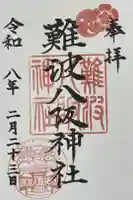 奉拝
難波八阪神社
令和 八年 二月二十三日